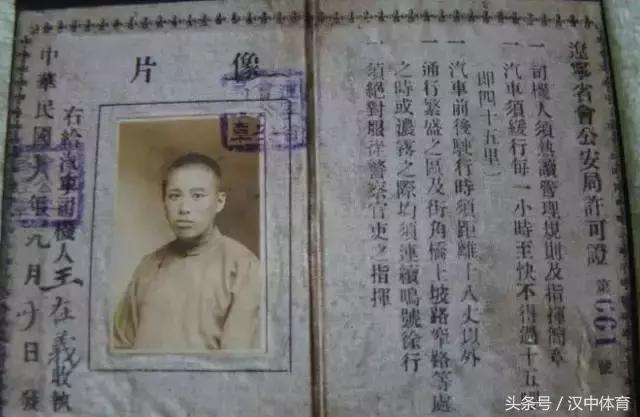 遼寧省會公安局許可證 第661號
一 司機人須熟讀管理規則及指揮簡章
一 汽車須緩行每一小時至快不得過十五
即四十五里）
一 汽車前後駛行時須距離十八丈以外
一 通行繁盛之區及街角橋上坡路窄路等處
之時或濃霧之際均須連續鳴號徐行
一 須絕對服從警察官吏之指揮
像片
右給汽車司機人王在義收執
中華民國 年九月 日發
头条号/汉中体育